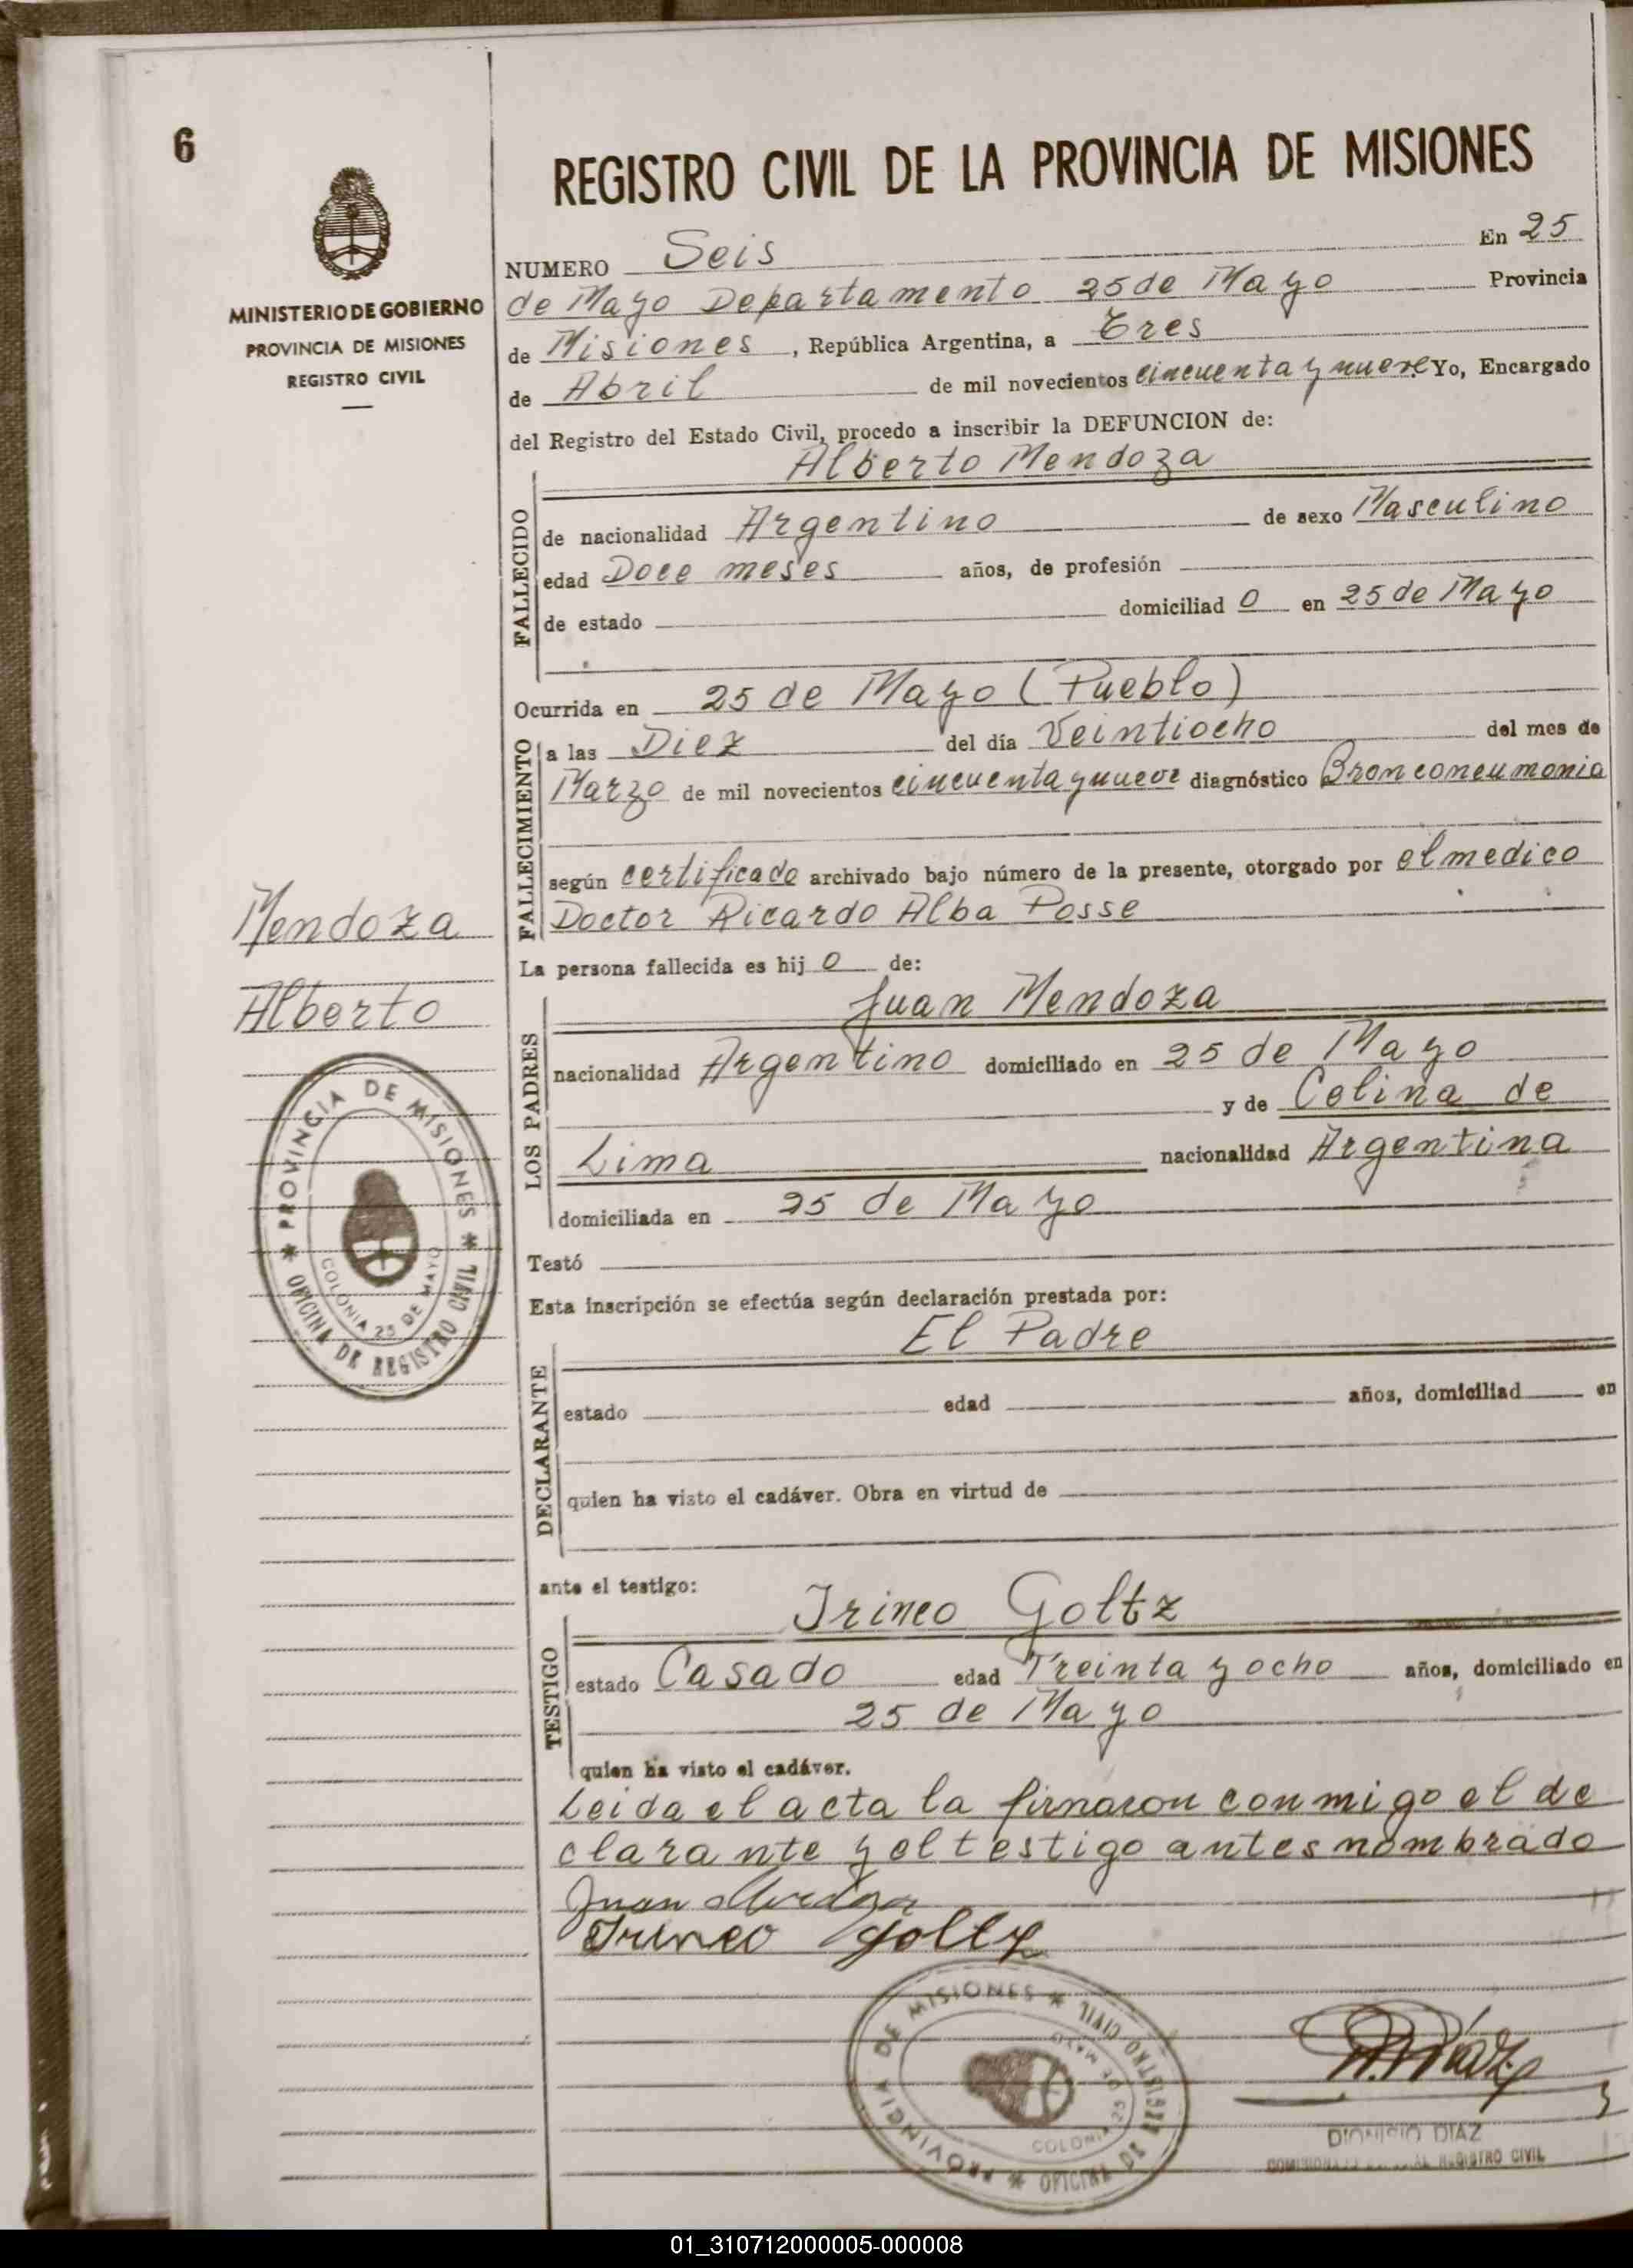 6
REGISTRO CIVIL DE LA PROVINCIA DE MISIONES
MINISTERIO DE GOBIERNO
PROVINCIA DE MISIONES
REGISTRO CIVIL
NUMERO Seis En 25
de Mayo Departamento 25 de Mayo Provincia
de Misiones, República Argentina, a Tres
de Abril de mil novecientos cincuenta y nueve Yo, Encargado
del Registro del Estado Civil, procedo a inscribir la DEFUNCION de:
Alberto Mendoza
FALLECIDO
de nacionalidad Argentino de sexo Masculino
edad Doce meses años, de profesión
de estado domiciliad o en 25 de Mayo
Ocurrida en 25 de Mayo (Pueblo)
FALLECIMIENTO
a las Diez del día Veintiocho del mes de
Marzo de mil novecientos cincuenta y nueve diagnóstico Bronconeumonia
según certificado archivado bajo número de la presente, otorgado por el medico
Doctor Ricardo Alba Posse
Mendoza
Alberto
La persona fallecida es hij o de:
Juan Mendoza
LOS PADRES
nacionalidad Argentino domiciliado en 25 de Mayo
y de Celina de
Lima nacionalidad Argentina
domiciliada en 25 de Mayo
PROVINCIA DE MISIONES * OFICINA DE REGISTRO CIVIL *
COLONIA 25 DE MAYO
Testó
Esta inscripción se efectúa según declaración prestada por:
El Padre
DECLARANTE
estado edad años, domiciliad en
quien ha visto el cadáver. Obra en virtud de
ante el testigo:
Irineo Goltz
TESTIGO
estado Casado edad Treinta y ocho años, domiciliado en
25 de Mayo
quien ha visto el cadáver.
Leida el acta la firmaron conmigo el de
clarante y el testigo antes nombrado
Juan Mendoza
Irineo Goltz
PROVINCIA DE MISIONES * OFICINA DE REGISTRO CIVIL *
COLONIA 25 DE MAYO
Díaz
DIONISIO DIAZ
REGISTRO CIVIL
01_310712000005-000008